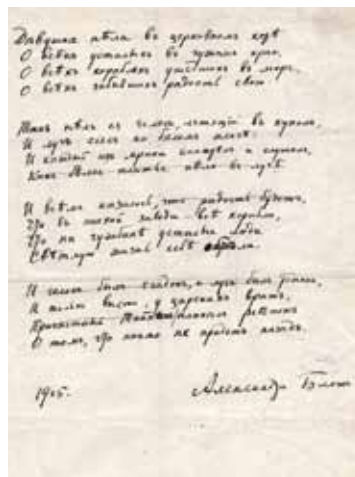 Дѣвушка пѣла въ церковномъ хорѣ
О всѣхъ усталыхъ въ чужомъ краю,
О всѣхъ корабляхъ, ушедшихъ въ море,
О всѣхъ, забывшихъ радость свою.
Такъ пѣлъ ея голосъ, летящій въ куполъ,
И лучъ сіялъ на бѣломъ плечѣ,
И каждый изъ мрака смотрѣлъ и слушалъ,
Какъ бѣлое платье пѣло въ лучѣ.
И всѣмъ казалось, что радость будетъ,
Что въ тихой заводи всѣ корабли,
Что на чужбинѣ усталые люди
Свѣтлую жизнь себѣ обрѣли.
И голосъ былъ сладокъ, и лучъ былъ тонокъ,
И только высоко, у царскихъ вратъ,
Причастный Тайнамъ, плакалъ ребенокъ
О томъ, что никто не придетъ назадъ.
1905.
Александръ Блокъ